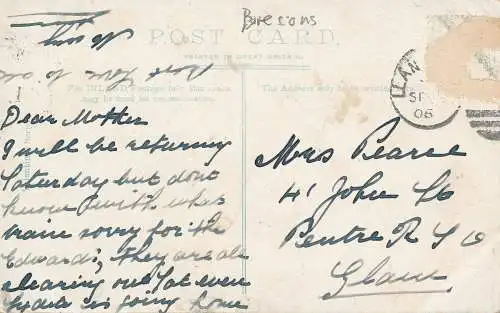 Brecons
POST CARD.
PRINTED IN GREAT BRITAIN
Best love to
For INLAND Postage only this space
may be used for communication.
The Address only to be written
LLAN
SP
06
Dear Mother
I will be returning
Saturday but dont
know with what
train sorry for the
Edwards, they are all
clearing out
is going home
Mrs Pearce
41 John St
Pentre R S O
Glam